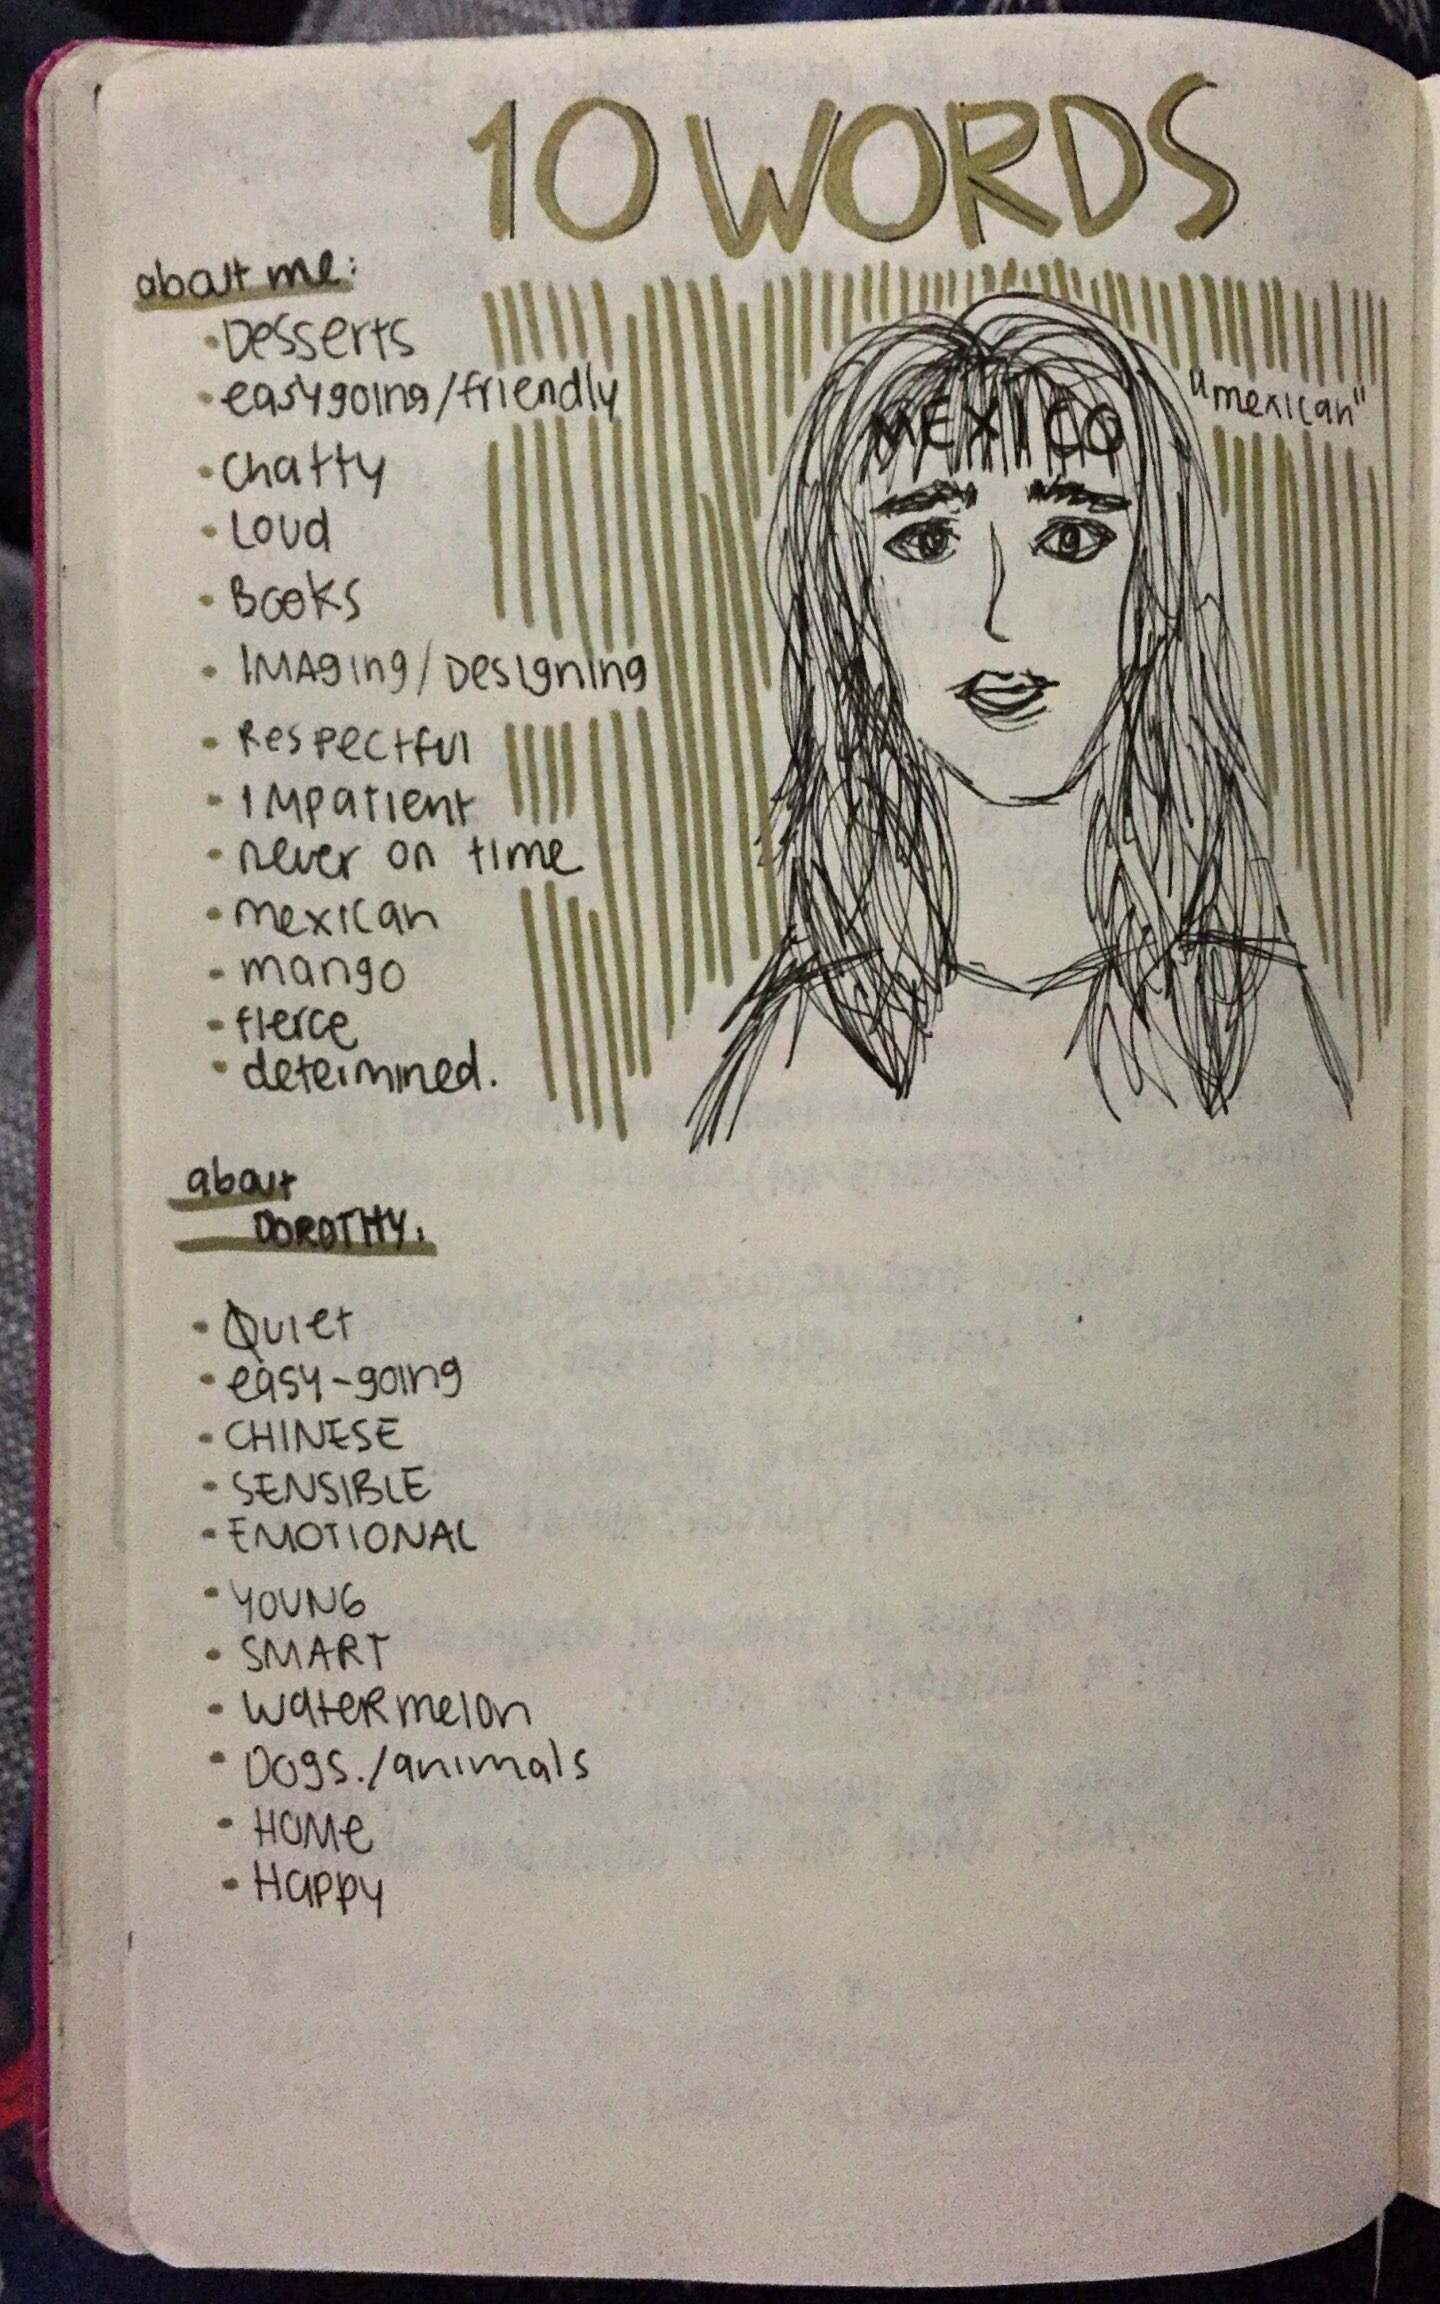 10 WORDS
about me:
• Desserts
• easygoing/friendly
• Chatty
• Loud
• Books
• IMAging/Designing
• Respectful
• Impatient
• never on time
• mexican
• mango
• fierce
• determined.
MEXICO
"mexican"
about
DOROTHY.
• Quiet
• easy-going
• CHINESE
• SENSIBLE
• EMOTIONAL
• YOUNG
• SMART
• WateRmelon
• Dogs./animals
• HOMe
• Happy